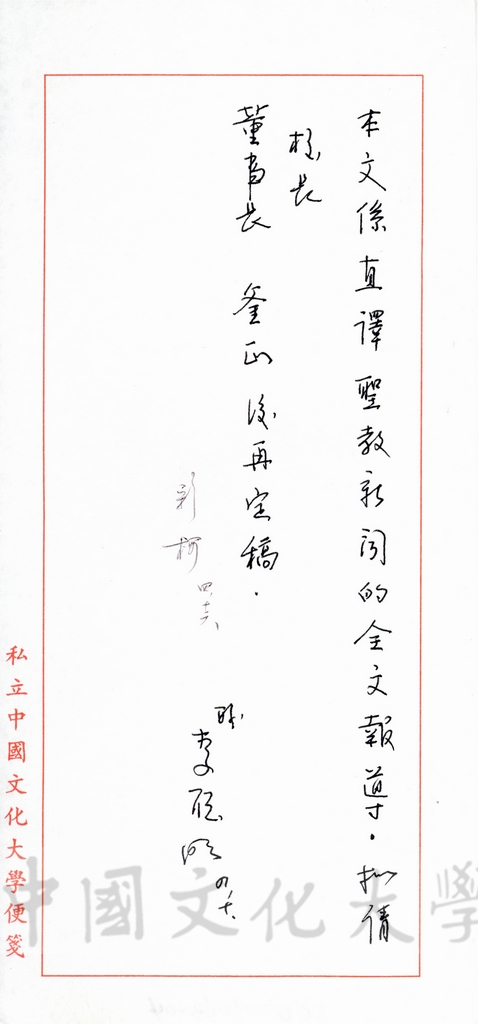 本文係直譯聖教新聞的全文報導．擬請
校長
董事長　釜正後再定稿．
彭樹
職
李聰明
私立中國文化大學便箋
中國文化大學